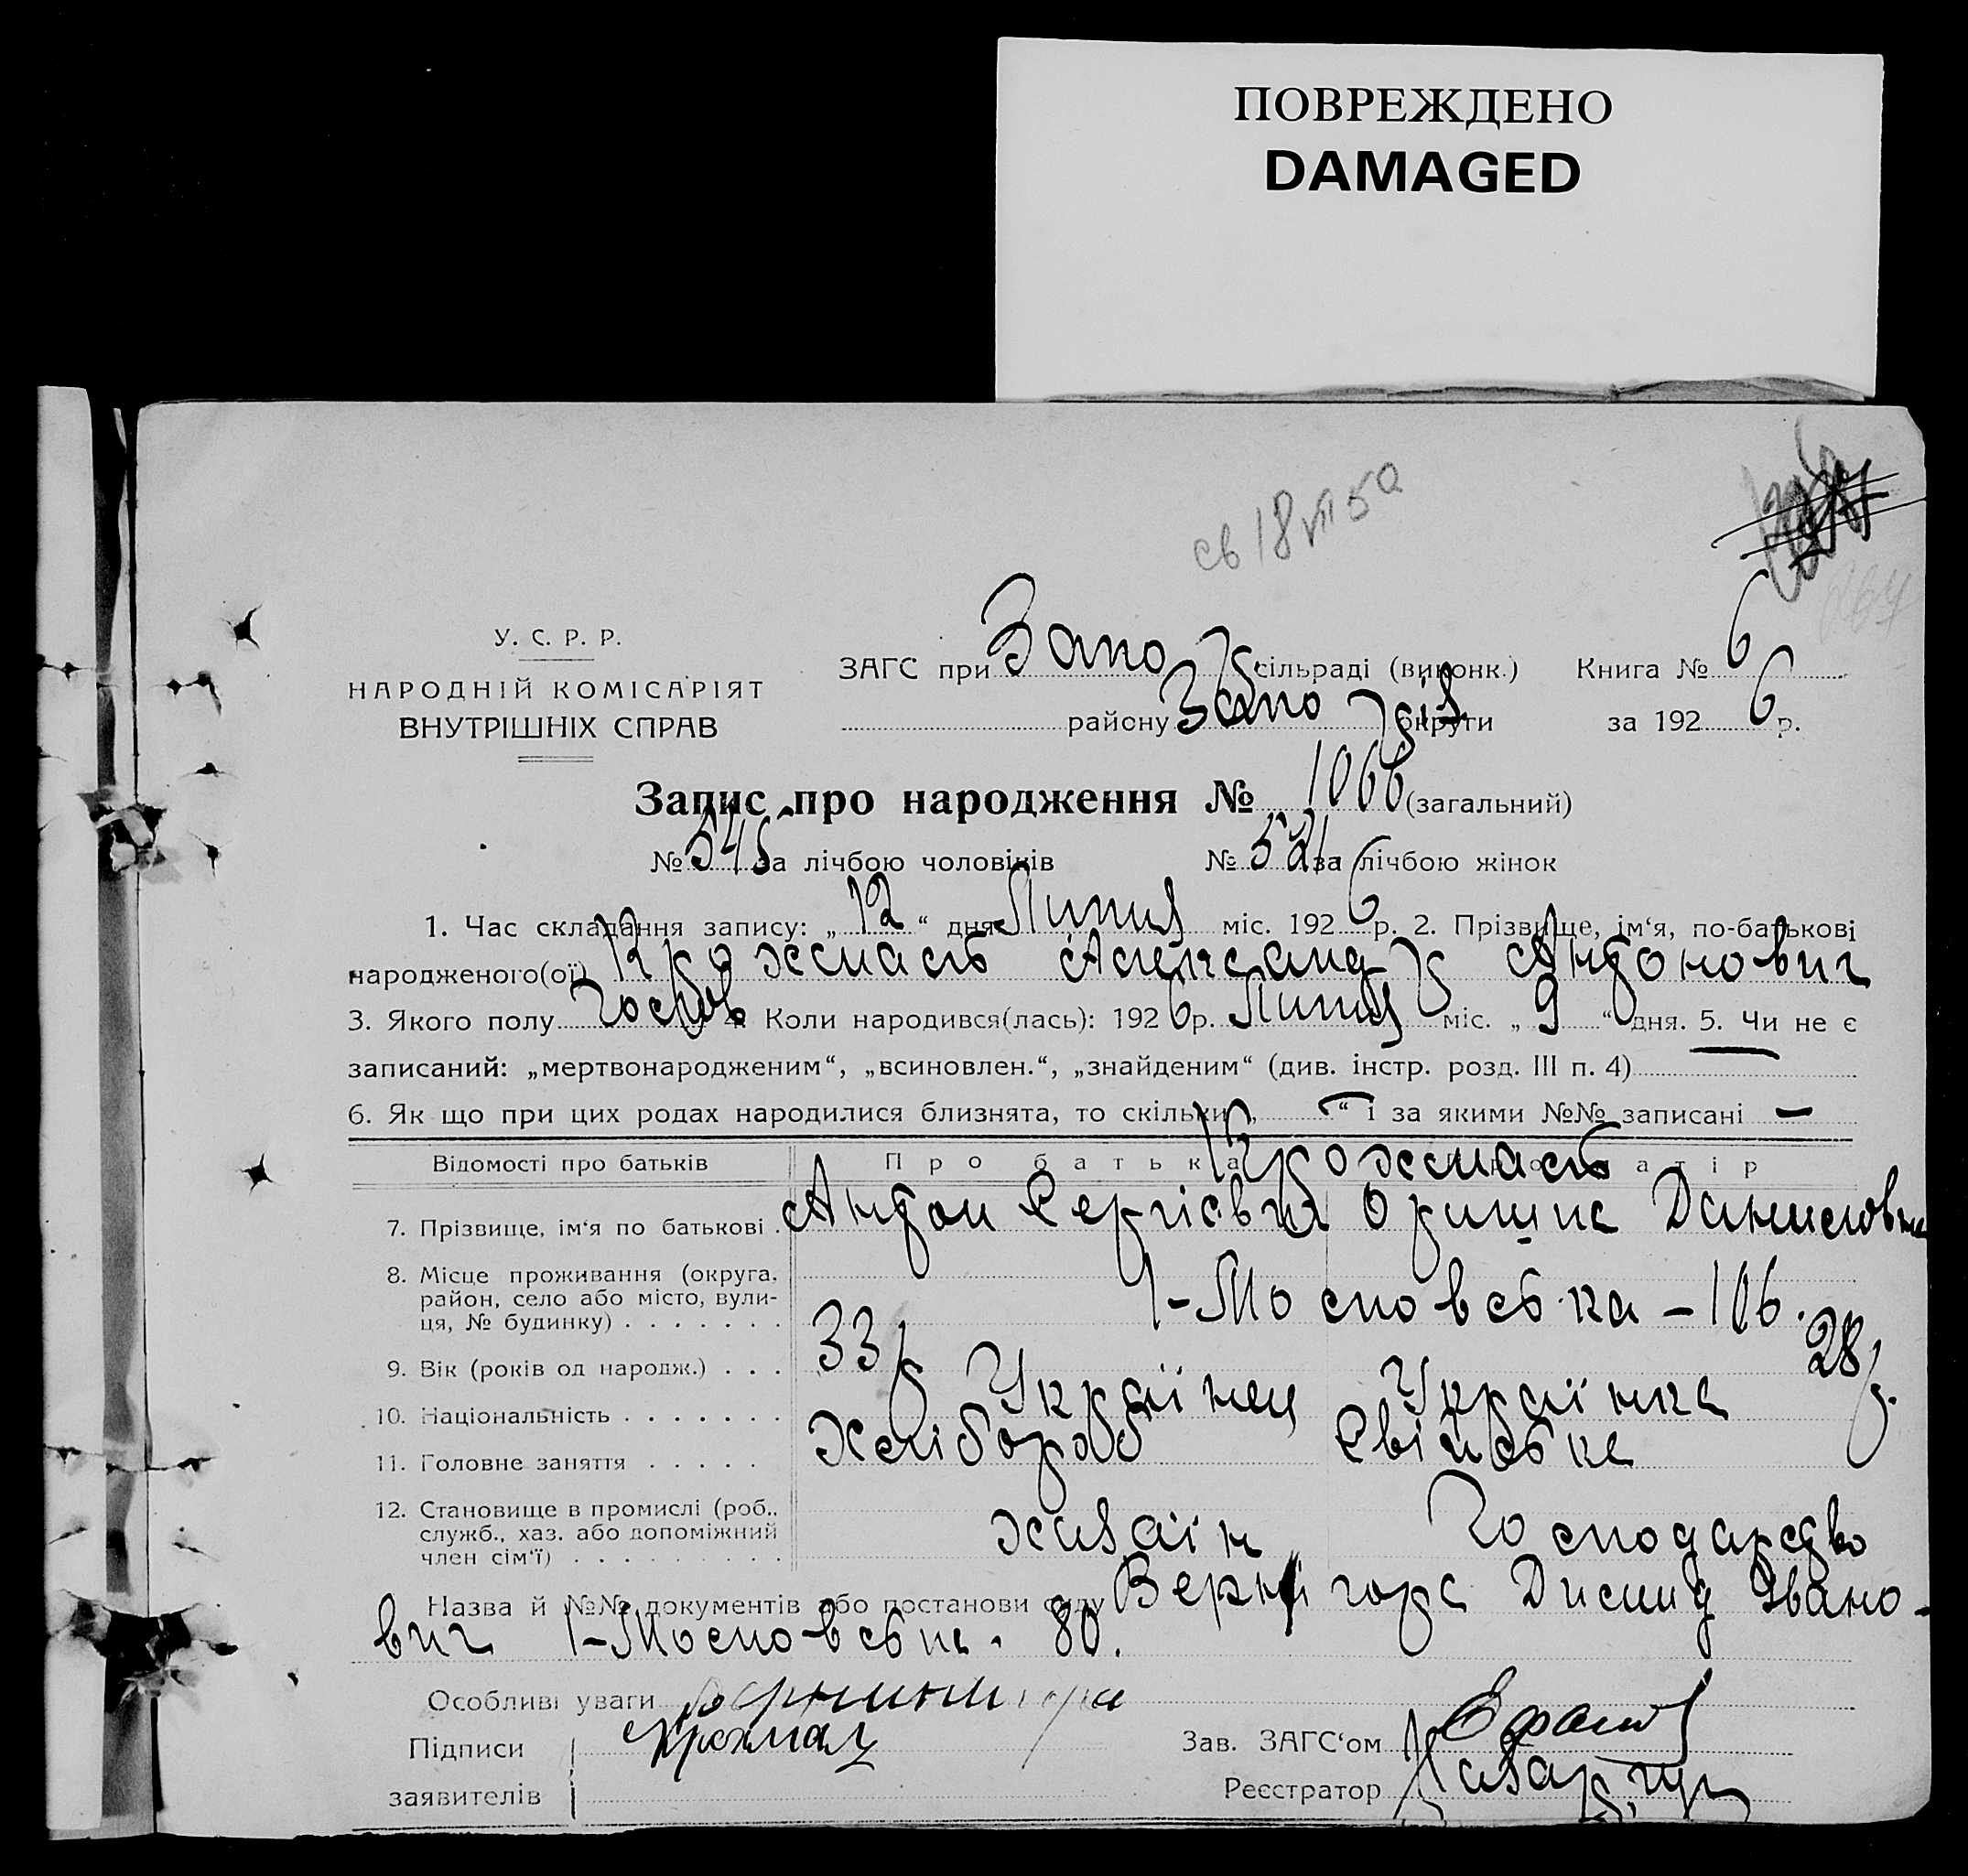 ПОВРЕЖДЕНО
DAMAGED
св 18 VII 50
У. С. Р. Р.
НАРОДНІЙ КОМІСАРІЯТ
ВНУТРІШНІХ СПРАВ
ЗАГС при Запо сільраді (виконк.) Книга № 6
району Запо округи за 1926 р.
Запис про народження № 1066 (загальний)
№ 545 за лічбою чоловіків № 521 за лічбою жінок
1. Час складання запису: „12“ дня Липня міс. 1926 р. 2. Прізвище, ім‘я, по-батькові
народженого(ої) Крохмаль Александр Антонович
3. Якого полу 4. Коли народився(лась): 1926 р. Липня міс. „9“ дня. 5. Чи не є
записаний: „мертвонародженим“, „всиновлен.“, „знайденим“ (див. інстр. розд. III п. 4)
6. Як що при цих родах народилися близнята, то скільки „ — “ і за якими №№ записані —
Відомості про батьків Про батька Про матір
Крохмаль
7. Прізвище, ім‘я по батькові . Антон Сергієвич Оришка Даниловна
8. Місце проживання (округа, район, село або місто, вулиця, № будинку) . . . . . . . 1-Московська - 106.
9. Вік (років од народж.) . . . 33 р 28 р.
10. Національність . . . . . . . Українец Українка
11. Головне заняття . . . . . Хлібороб Свійське
12. Становище в промислі (роб., служб., хаз. або допоміжний член сім‘ї) . . . . . . . . . хазаїн Господарство
Назва й №№ документів або постанови суду Вернигора Дисмид Івано-
вич 1-Московська. 80.
Особливі уваги
Підписи Крохмаль Зав. ЗАГС‘ом
заявителів Реєстратор